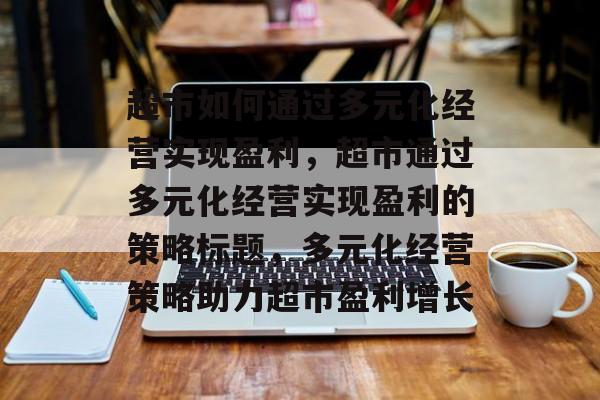 超市如何通过多元化经
营实现盈利，超市通过
多元化经营实现盈利的
策略标题，多元化经营
策略助力超市盈利增长